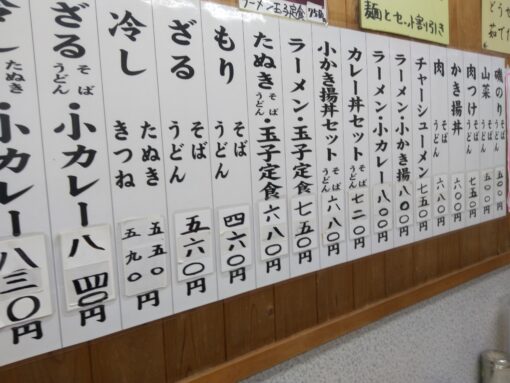 ラーメン玉子定食 750円
麺とセット割引き
磯のり そば うどん 五〇〇円
山菜 そば うどん 五〇〇円
肉つけ そば うどん 七五〇円
かき揚丼 六〇〇円
肉 そば うどん 六八〇円
チャーシューメン 七五〇円
ラーメン・小かき揚 八〇〇円
ラーメン・小カレー 八〇〇円
カレー丼セット そば うどん 七二〇円
小かき揚丼セット そば うどん 六八〇円
ラーメン・玉子定食 七五〇円
たぬき そば うどん 玉子定食 六八〇円
もり そば うどん 四六〇円
ざる そば うどん 五六〇円
冷し たぬき きつね 五五〇 五九〇円
ざる そば うどん ・小カレー 八四〇円
冷し たぬき うどん ・小カレー 八三〇円